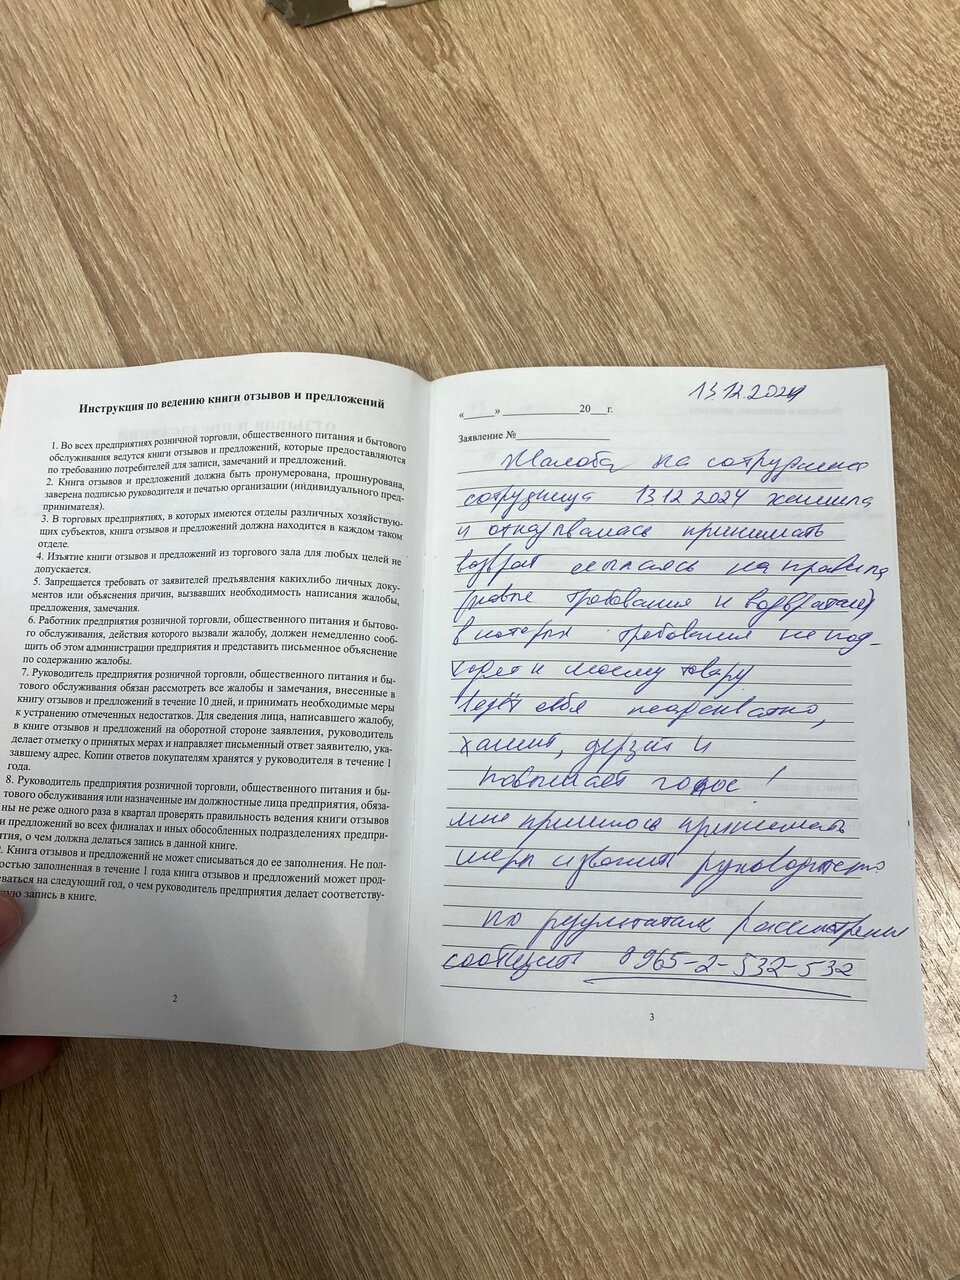 Инструкция по ведению книги отзывов и предложений
1. Во всех предприятиях розничной торговли, общественного питания и бытового
обслуживания ведутся книги отзывов и предложений, которые предоставляются
по требованию потребителей для записи, замечаний и предложений.
2. Книга отзывов и предложений должна быть пронумерована, прошнурована,
заверена подписью руководителя и печатью организации (индивидуального пред-
принимателя).
3. В торговых предприятиях, в которых имеются отделы различных хозяйствую-
щих субъектов, книга отзывов и предложений должна находится в каждом таком
отделе.
4. Изъятие книги отзывов и предложений из торгового зала для любых целей не
допускается.
5. Запрещается требовать от заявителей предъявления какихлибо личных доку-
ментов или объяснения причин, вызвавших необходимость написания жалобы,
предложения, замечания.
6. Работник предприятия розничной торговли, общественного питания и бытово-
го обслуживания, действия которого вызвали жалобу, должен немедленно сооб-
щить об этом администрации предприятия и представить письменное объяснение
по содержанию жалобы.
7. Руководитель предприятия розничной торговли, общественного питания и бы-
тового обслуживания обязан рассмотреть все жалобы и замечания, внесенные в
книгу отзывов и предложений в течение 10 дней, и принимать необходимые меры
к устранению отмеченных недостатков. Для сведения лица, написавшего жалобу,
в книге отзывов и предложений на оборотной стороне заявления, руководитель
делает отметку о принятых мерах и направляет письменный ответ заявителю, ука-
завшему адрес. Копии ответов покупателям хранятся у руководителя в течение 1
года.
8. Руководитель предприятия розничной торговли, общественного питания и бы-
тового обслуживания или назначенные им должностные лица предприятия, обяза-
ны не реже одного раза в квартал проверять правильность ведения книги отзывов
и предложений во всех филиалах и иных обособленных подразделениях предпри-
ятия, о чем должна делаться запись в данной книге.
. Книга отзывов и предложений не может списываться до ее заполнения. Не пол-
ностью заполненная в течение 1 года книга отзывов и предложений может прод-
еваться на следующий год, о чем руководитель предприятия делает соответству-
ую запись в книге.
2
13.12.2024
«_____» ____________ 20 __г.
Заявление №
Жалоба на сотрудника
сотрудница 13.12.2024
и отказывалась принимать
возврат ссылаясь на правила
требования и
в которых требования не под-
ходят к моему товару
Ведёт себя неадекватно,
хамит, дерзит и
повышает голос!
мне пришлось принимать
меры и звонить руководству
по результатам рассмотрения
сообщить 8965-2-532-532
3